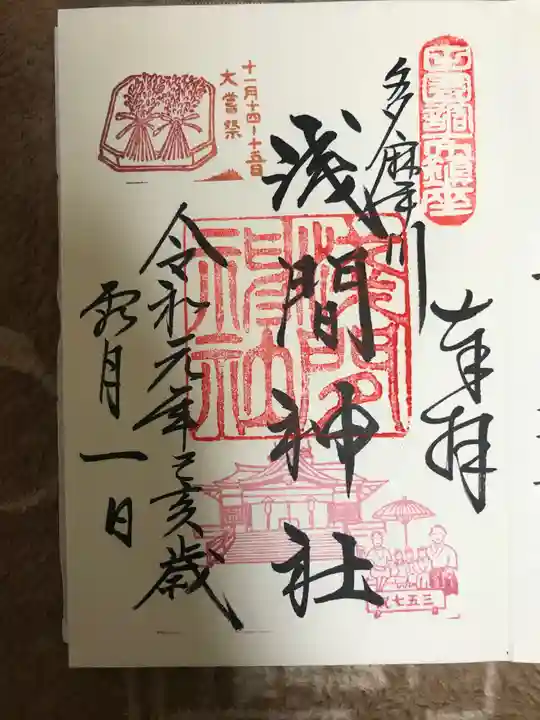 奉拝
多摩川
浅間神社
浅間神社
令和元年己亥歳
霜月一日
十一月十四~十五日
大嘗祭
三五七